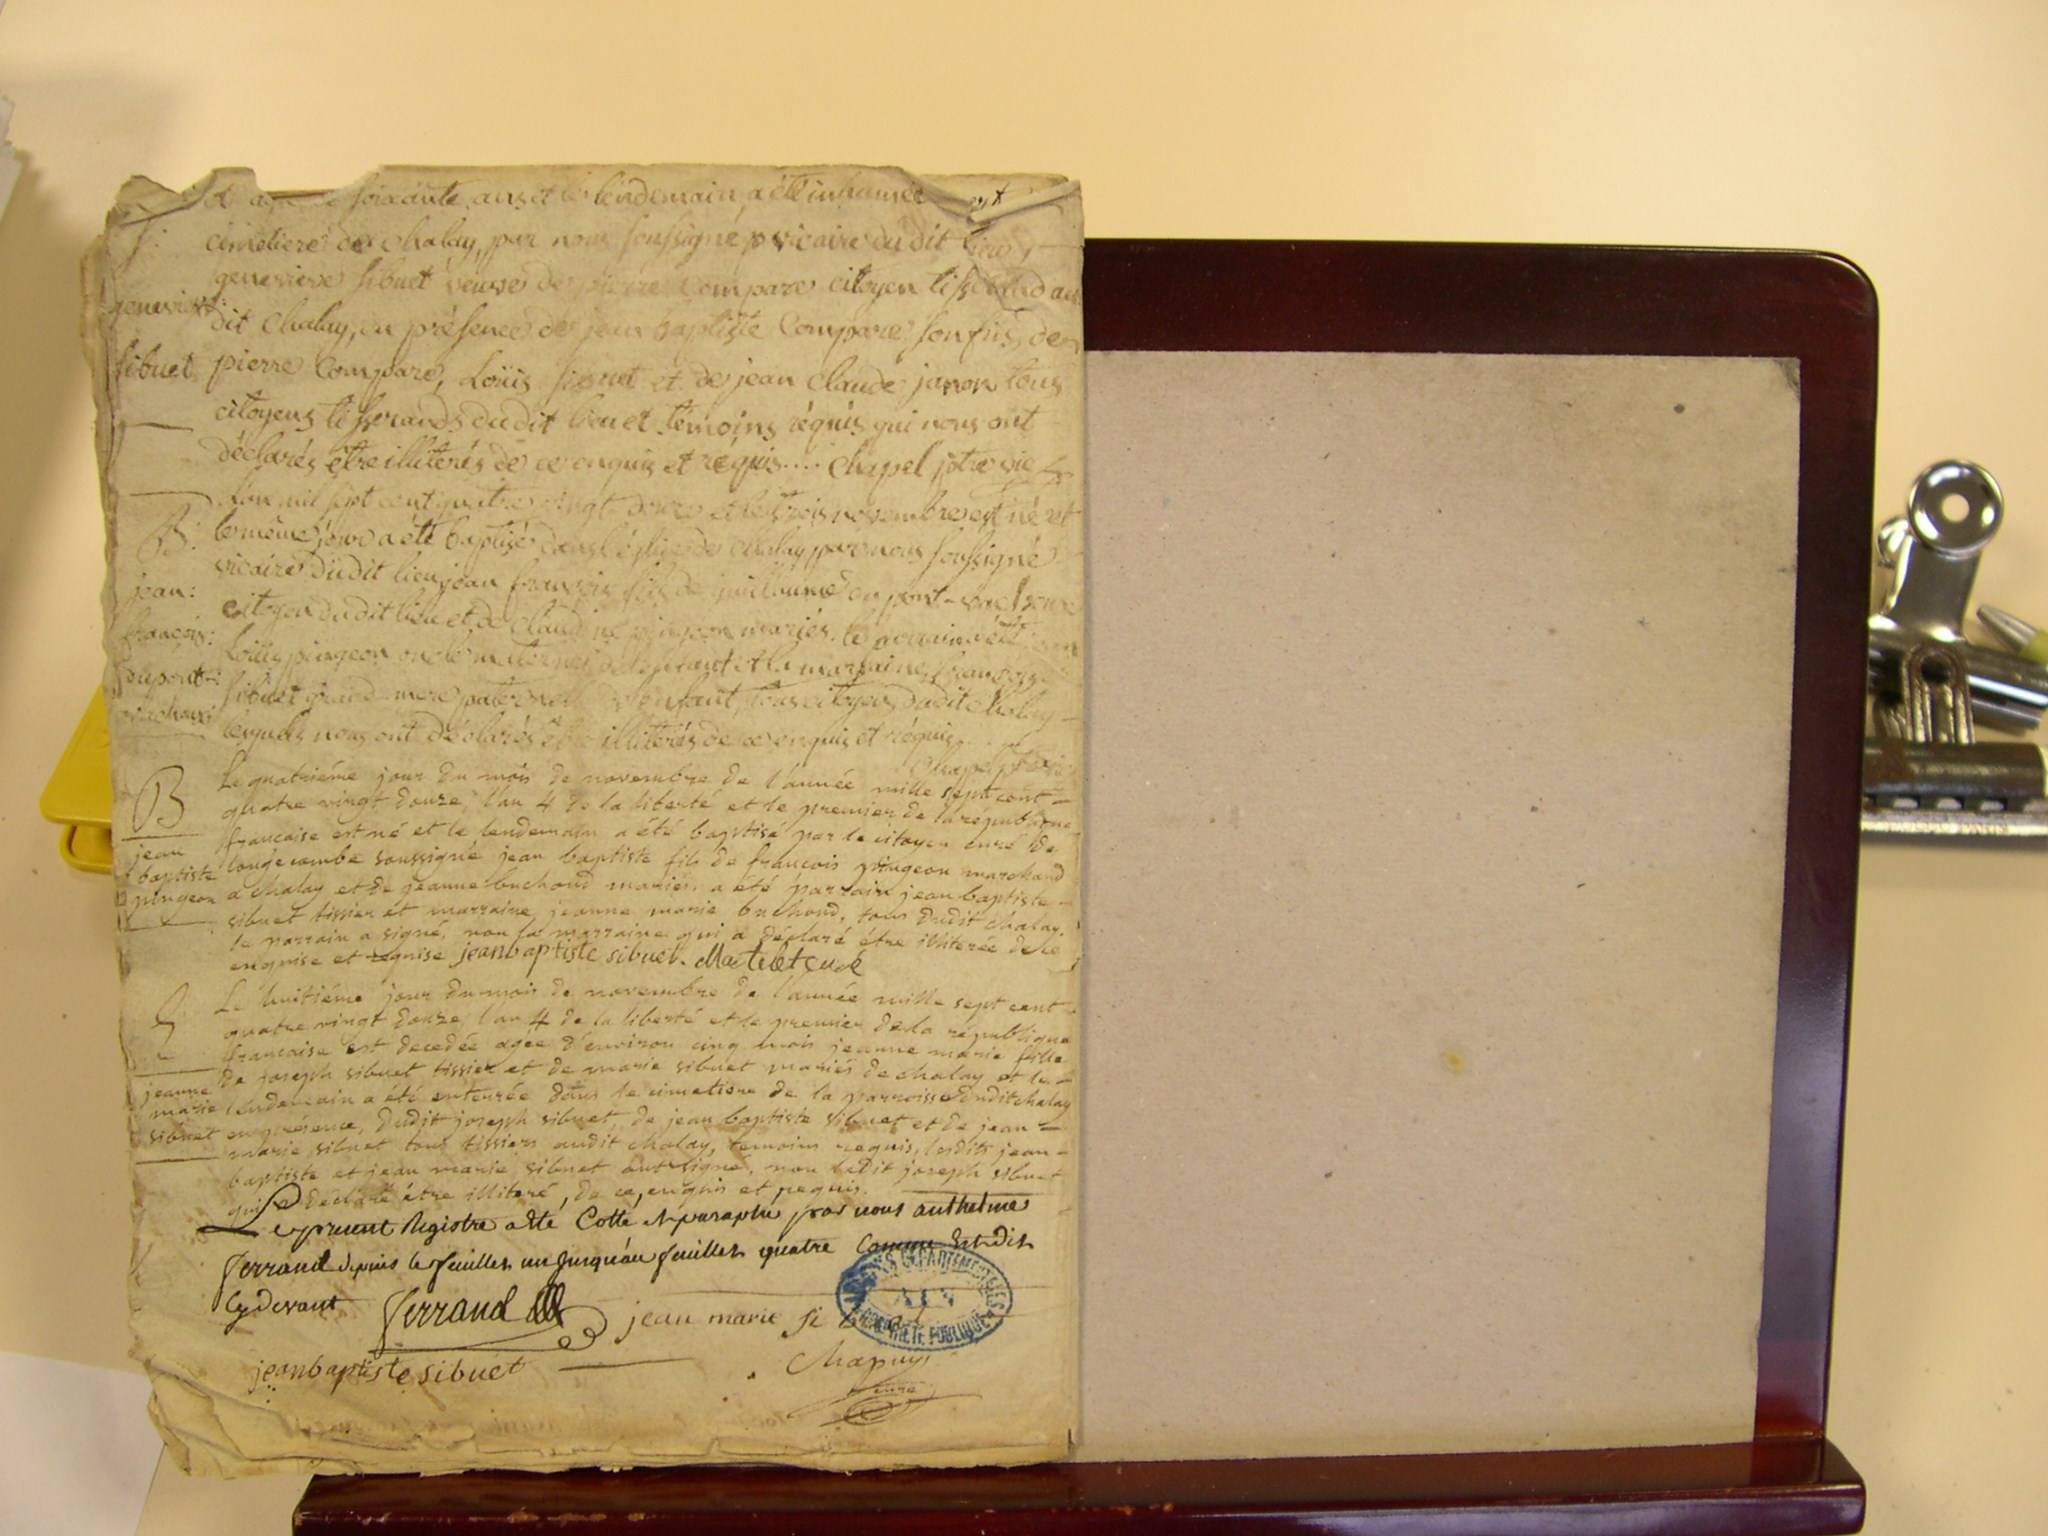 soixante ans et le lendemain a été inhumée
cimetiere de chalay, par nous soussigné vicaire du dit lieu,
genevieve sibuet veuve de pierre Compare citoyen tisserand au
dit Chalay, en présence de jean baptiste Compare son fils, de
pierre Compare, Loüis sibuet et de jean claude janon tous
citoyens tisserands du dit lieu et témoins réquis qui nous ont
déclarés être illitérés de ce enquis et requis.... chapel ptre vic
S:
genevieve
sibuet
L'an mil sept cent quatre vingt douze et le trois novembre est né et
le même jour a été baptisé dans l'église de chalay par nous soussigné
vicaire du dit lieu jean françois fils de guillaume du pont
citoyen du dit lieu et de Claudine pingeon mariés. le parrain a été
Loüis pingeon oncle maternel de l'enfant et la marraine françoise
sibuet grand mere paternelle de l'enfant, tous citoyens du dit chalay
lesquels nous ont déclarés être illitérés de ce enquis et réquis...
Chapel ptre vic
B:
jean:
françois:
dupont-
Le quatriéme jour du mois de novembre de l'année mille sept cent-
quatre vingt douze, l'an 4 de la liberté et le premier de la république
francaise est né et le lendemain a été baptisé par le citoyen curé de
longecombe soussigné jean baptiste fils de francois pingeon marchand
a chalay et de jeanne buchoud mariés. a été parrain jean baptiste-
sibuet tissier et marraine jeanne marie buchoud, tous dudit chalay.
le parrain a signé, non la marraine qui a déclaré étre illiterée de ce
enquise et requise jeanbaptiste sibuet. curé
B
jean
baptiste
pingeon
Le huitiéme jour du mois de novembre de l'année mille sept cent
quatre vingt douze, l'an 4 de la liberté et le premier de la république
francaise est decedée agée d'environ cinq mois jeanne marie fille
de joseph sibuet tissier et de marie sibuet mariés de chalay et le-
lendemain a été enterrée dans le cimetiere de la parroisse dudit chalay
en présence, dudit joseph sibuet, de jean baptiste sibuet et de jean-
marie sibuet tous tissiers audit chalay, temoins requis, lesdits jean-
baptiste et jean marie sibuet ont signé, non ledit joseph sibuet
qui a déclaré étre illiteré, de ce, enquis et requis.
S
jeanne
marie
sibuet
Le present Registre a eté Cotté et paraphé par nous anthelme
ferrand depuis le feuillet un jusqu'au feuillet quatre Comme est dit
Cydevant ferrand
jean marie si
jeanbaptiste sibuet
Chapuy
curé
ARCHIVES DEPARTEMENTALES
AIN
PROPRIETE PUBLIQUE